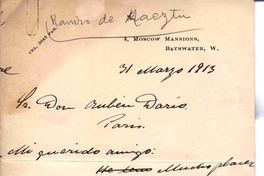 Ramiro de Maeztu
4, Moscow Mansions,
Bayswater, W.
31 Marzo 1913
Sr. Don Rubén Darío.
Paris.
Mi querido amigo:
Mucho placer